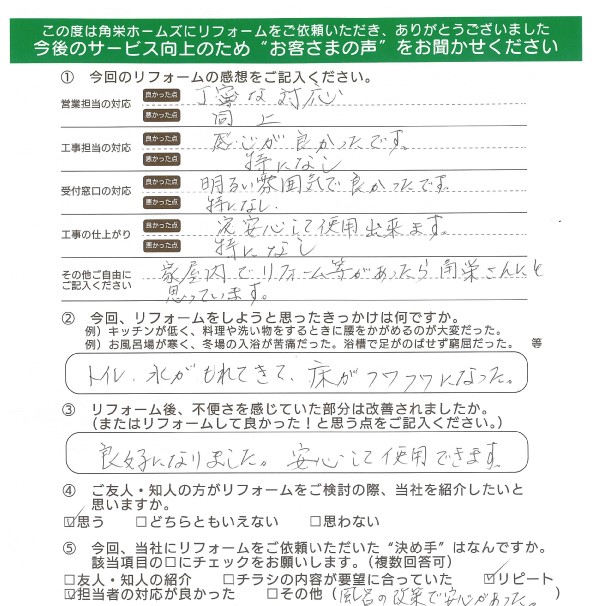 この度は角栄ホームズにリフォームをご依頼いただき、ありがとうございました
今後のサービス向上のため“お客さまの声”をお聞かせください
① 今回のリフォームの感想をご記入ください。
営業担当の対応 良かった点 丁寧な対応
悪かった点 同上
工事担当の対応 良かった点 感じが良かったです。
悪かった点 特になし
受付窓口の対応 良かった点 明るい雰囲気で良かったです。
悪かった点 特になし.
工事の仕上がり 良かった点 安心して使用出来ます。
悪かった点 特になし
その他ご自由にご記入ください 家屋内でリフォーム等があったら角栄さんにと
思っています。
② 今回、リフォームをしようと思ったきっかけは何ですか。
例）キッチンが低く、料理や洗い物をするときに腰をかがめるのが大変だった。
例）お風呂場が寒く、冬場の入浴が苦痛だった。浴槽で足がのばせず窮屈だった。 等
トイレ、水がもれてきて、床がフワフワになった。
③ リフォーム後、不便さを感じていた部分は改善されましたか。
（またはリフォームして良かった！と思う点をご記入ください。）
良好になりました。安心して使用できます
④ ご友人・知人の方がリフォームをご検討の際、当社を紹介したいと
思いますか。
☑思う □どちらともいえない □思わない
⑤ 今回、当社にリフォームをご依頼いただいた“決め手”はなんですか。
該当項目の□にチェックをお願いします。（複数回答可）
□友人・知人の紹介 □チラシの内容が要望に合っていた ☑リピート
☑担当者の対応が良かった □その他（風呂の改築で安心があった。）